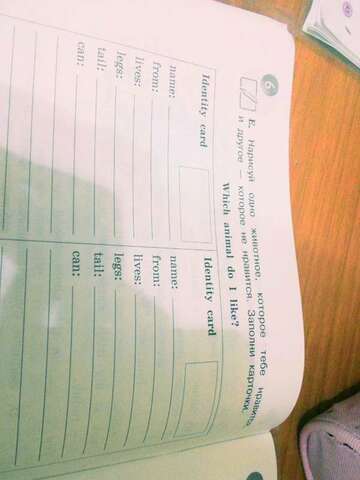 6
Е. Нарисуй одно животное, которое тебе нравится,
и другое — которое не нравится. Заполни карточки.
Which animal do I like?
Identity card
name:
from:
lives:
legs:
tail:
can:
Identity card
name:
from:
lives:
legs:
tail:
can: